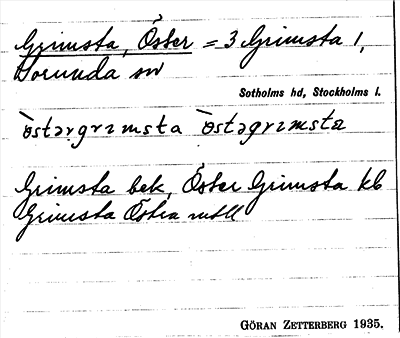 Grimsta, Öster = 3 Grimsta 1,
Sorunda sn
Sotholms hd, Stockholms l.
`östəṛgrɪmsta `östəgrɪmsta
Grimsta bek, Öster Grimsta kb
Grimsta Östra mtll
GÖRAN ZETTERBERG 1935.